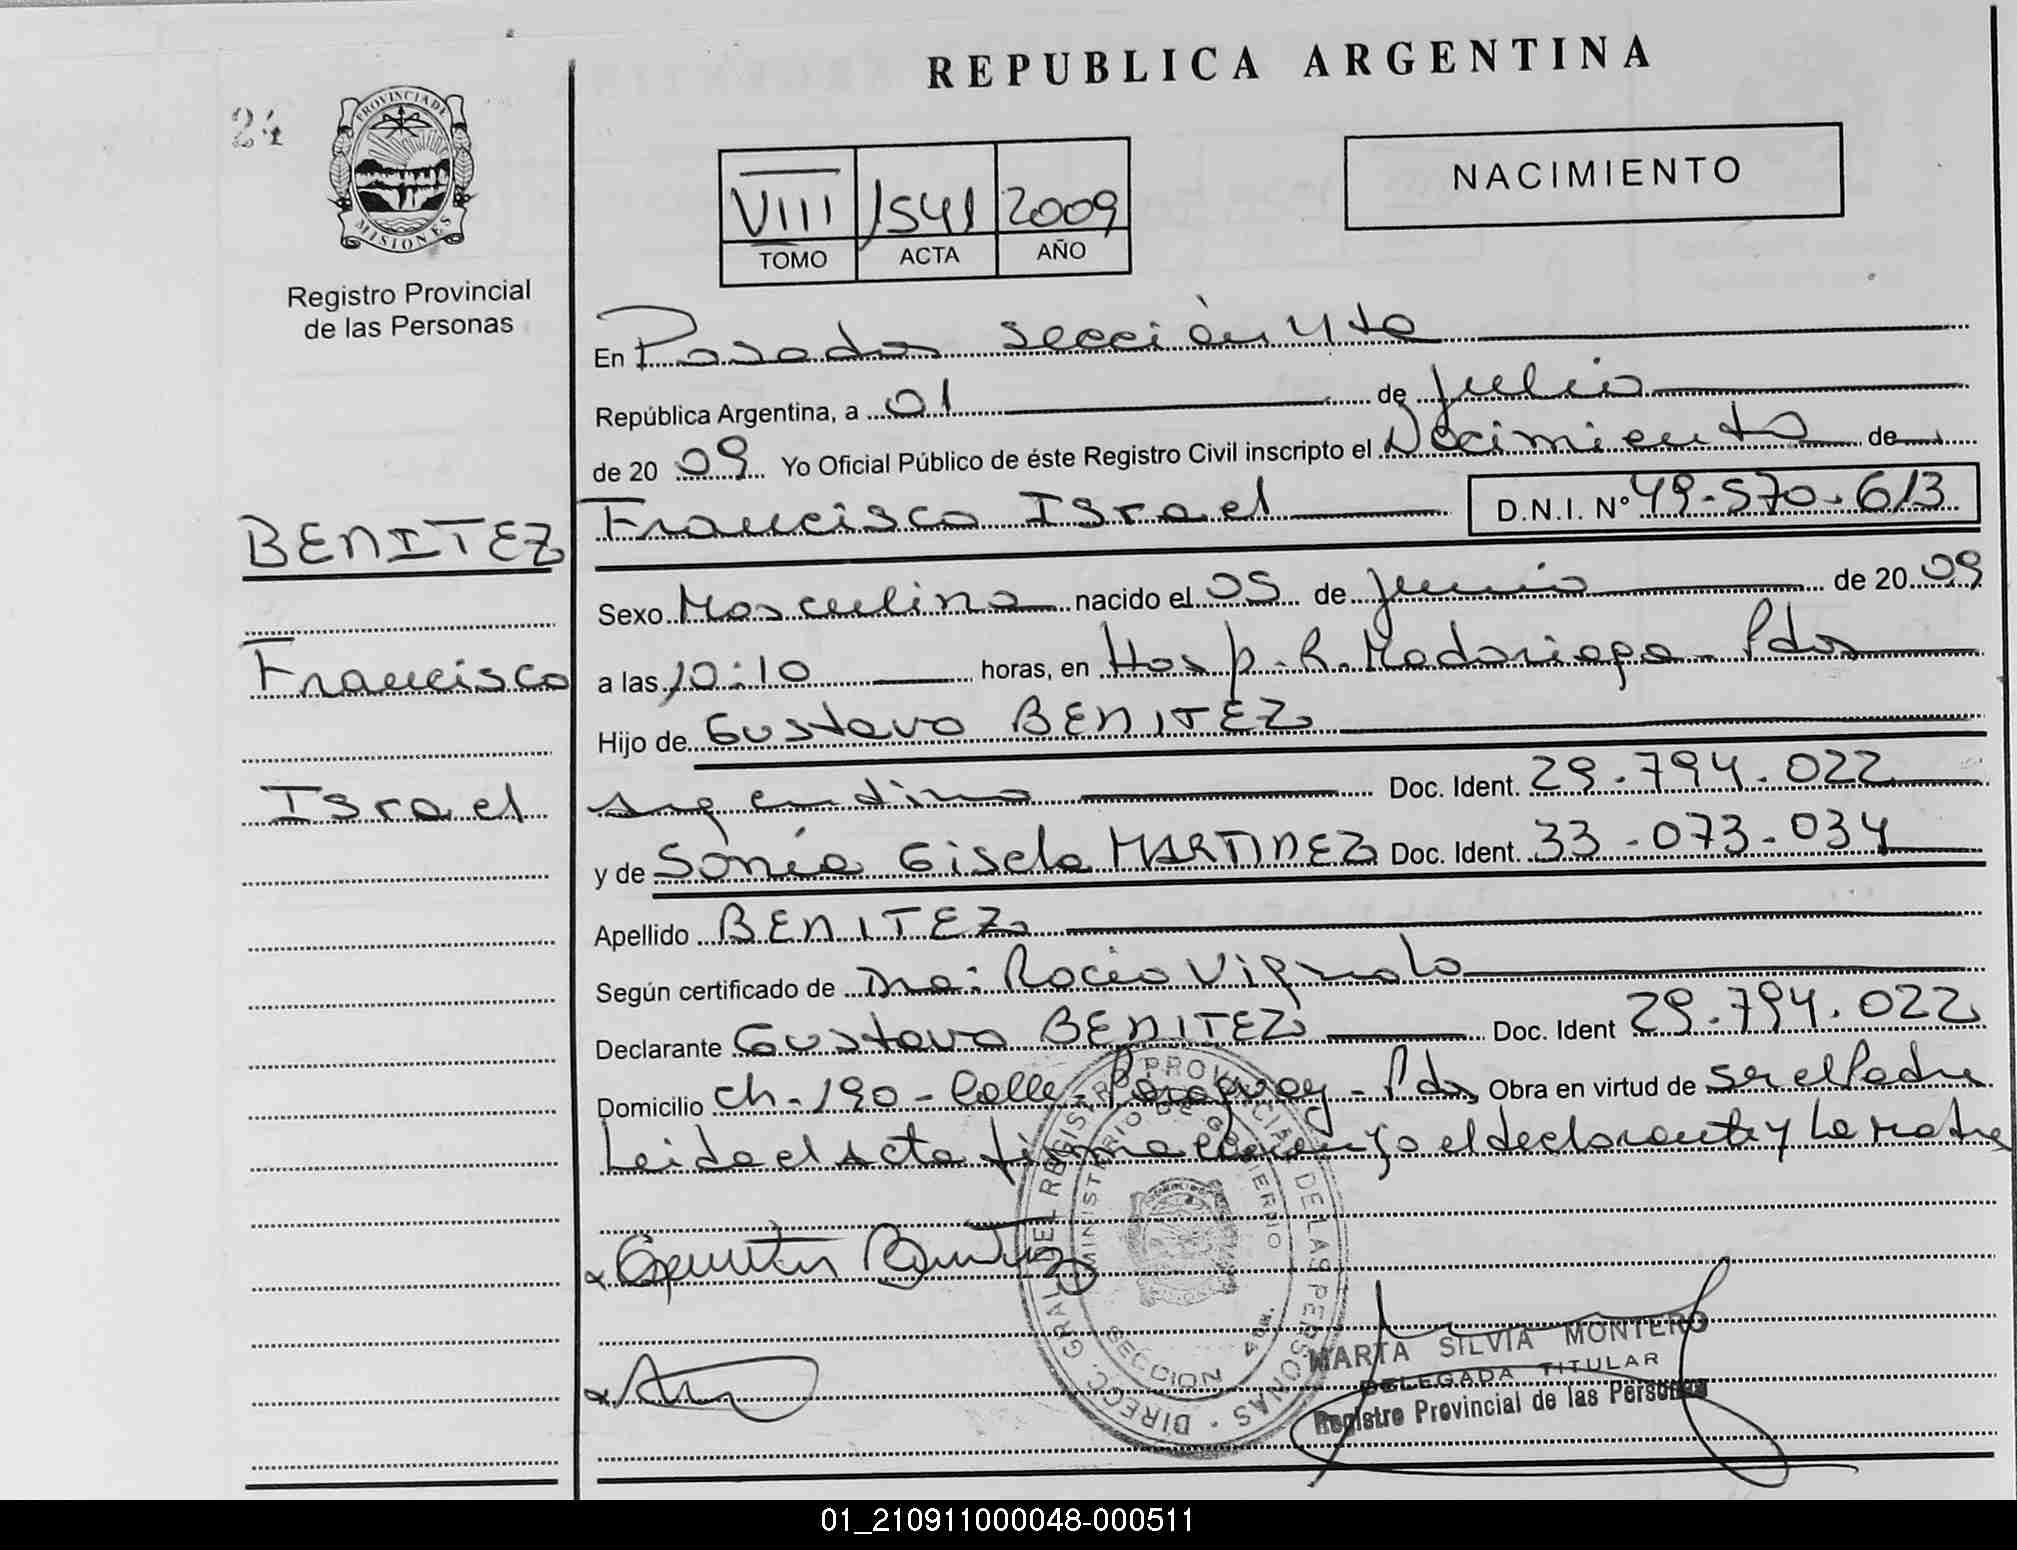 REPUBLICA ARGENTINA
24
PROVINCIA DE
MISIONES
Registro Provincial
de las Personas
VIII 1541 2009
TOMO ACTA AÑO
NACIMIENTO
En Posadas sección 4ta
República Argentina, a 01 de Julio
de 2009 Yo Oficial Público de éste Registro Civil inscripto el Nacimiento de
BENITEZ
Francisco Israel D.N.I. Nº 49.570.613
Sexo Masculino nacido el 05 de Junio de 2009
Francisco
a las 10:10 horas, en Hosp. R. Madariaga - Pdas
Hijo de Gustavo BENITEZ
Israel
argentino Doc. Ident. 29.794.022
y de Sonia Gisela MARTINEZ Doc. Ident. 33.073.034
Apellido BENITEZ
Según certificado de Dra: Rocio Vignolo
Declarante Gustavo BENITEZ Doc. Ident 29.794.022
Domicilio Ch-190-Calle-Paraguay-Pdas Obra en virtud de ser el Padre
Leida el Acta firma conmigo el declarante y La Madre
DIREC. GRAL. DEL REGISTRO PROVINCIAL DE LAS PERSONAS
MINISTERIO DE GOBIERNO
SECCION 4ta.
Benitez
MARTA SILVIA MONTERO
DELEGADA TITULAR
Registro Provincial de las Personas
01_210911000048-000511